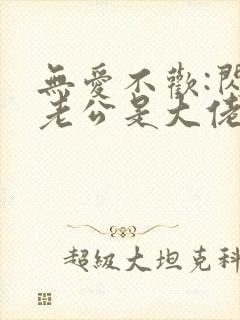 無愛不歡:閃
老公是大佬
超級大坦克科